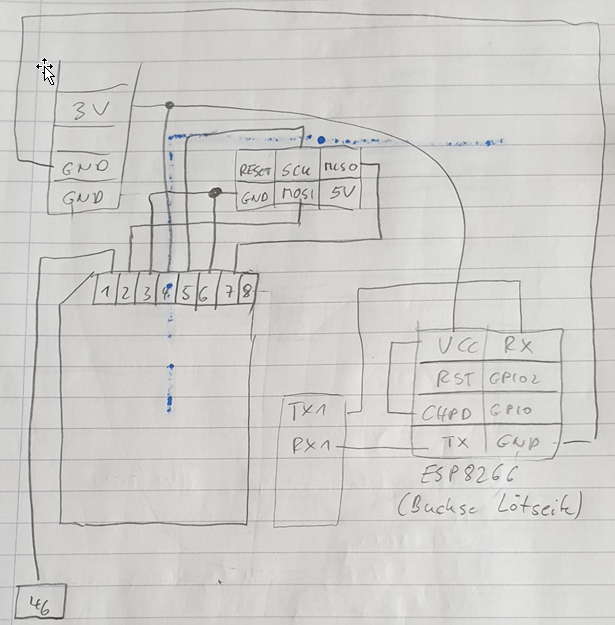 3V
GND
GND
RESET SCK MISO
GND MOSI 5V
1 2 3 4 5 6 7 8
VCC RX
RST GPIO2
CHPD GPIO
TX GND
TX1
RX1
ESP8266
(Buchse Lötseite)
46